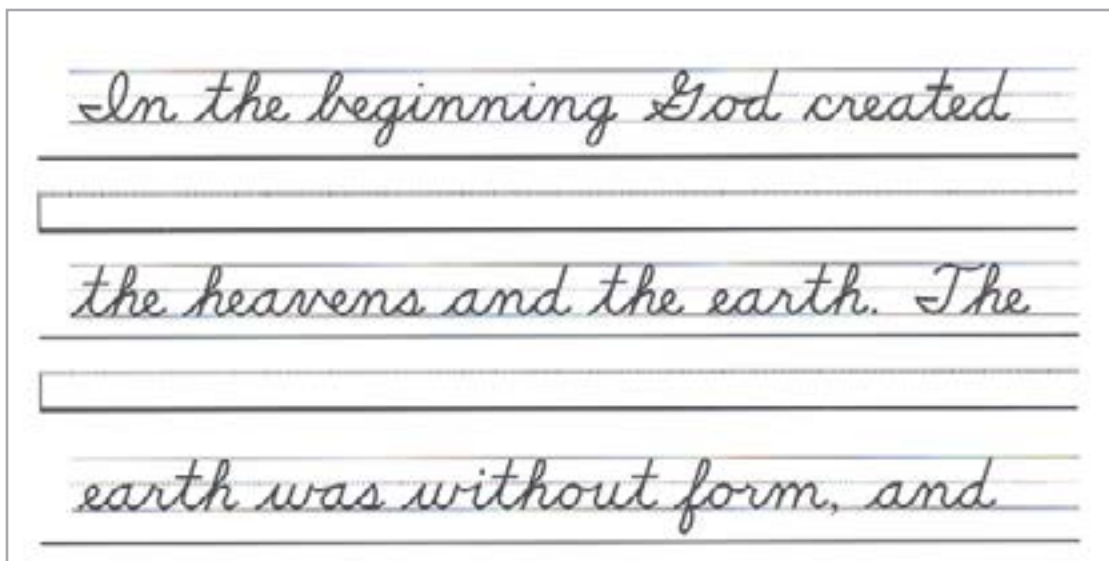 In the beginning God created
the heavens and the earth. The
earth was without form, and